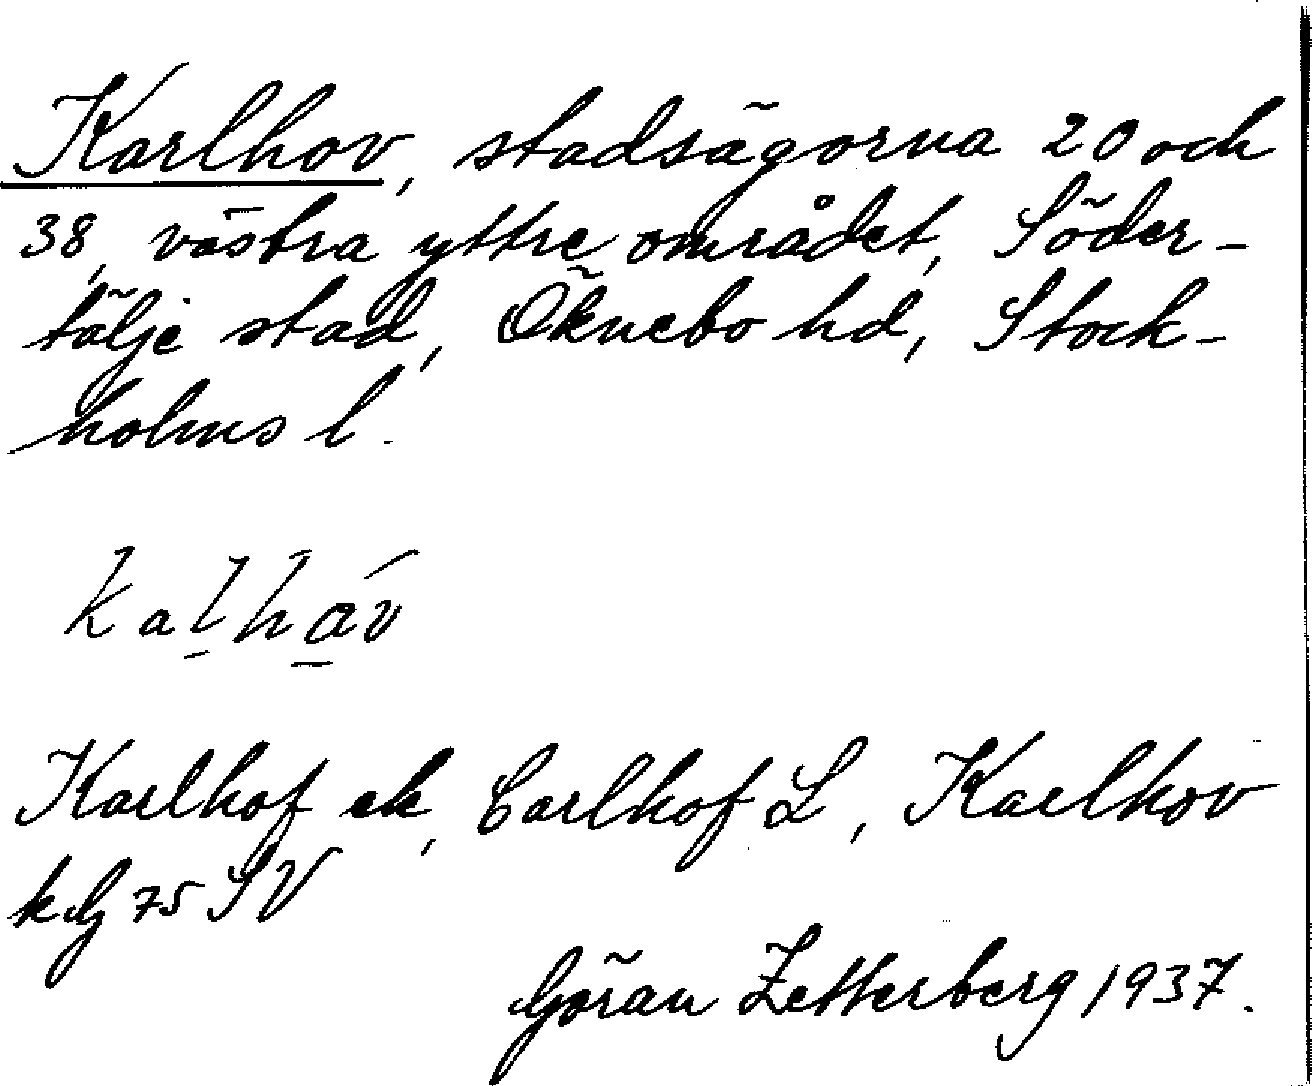 Karlhov, stadsägorna 20 och
38, västra yttre området, Söder-
tälje stad, Öknebo hd, Stock-
holms l.
kaḻhá̱v
Karlhof ek, Carlhof L, Karlhov
kbg 75 SV
Göran Zetterberg 1937.